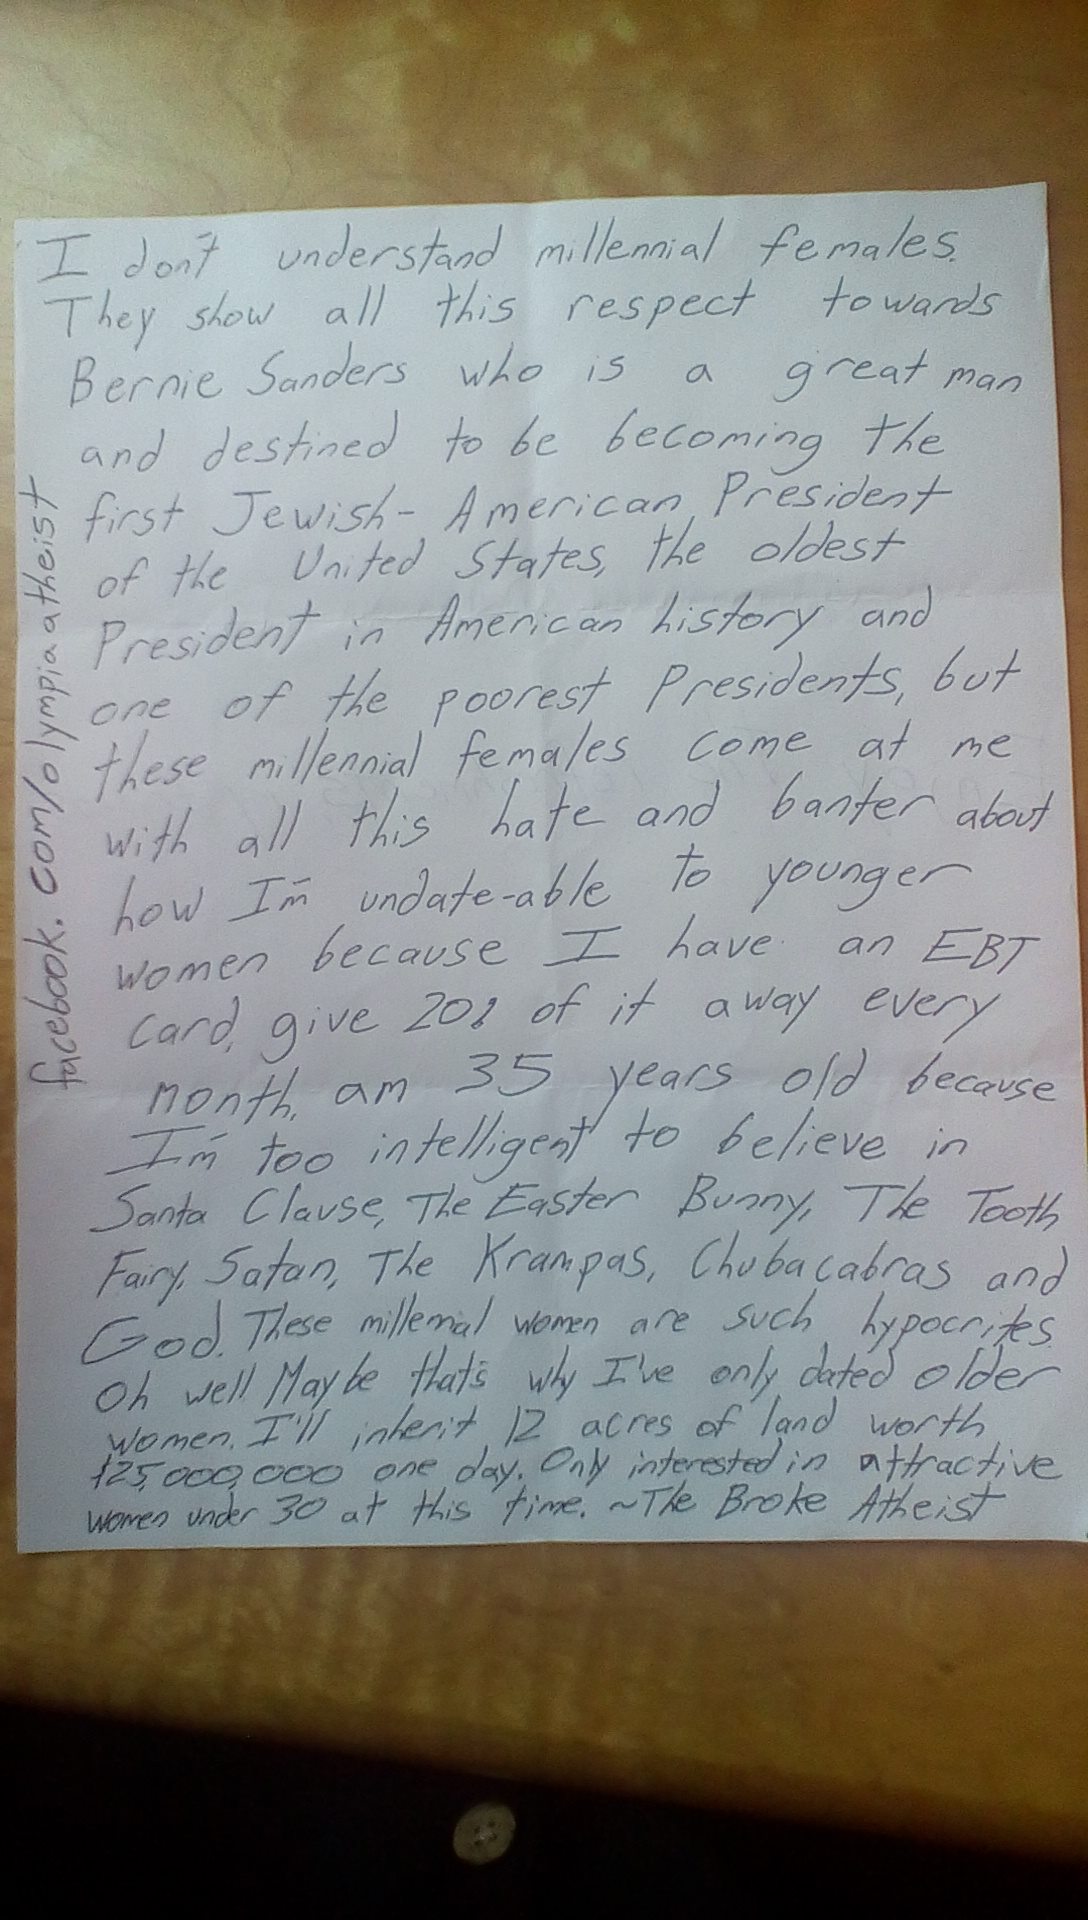 I don't understand millennial females.
They show all this respect towards
Bernie Sanders who is a great man
and destined to be becoming the
first Jewish-American President
of the United States, the oldest
President in American history and
one of the poorest Presidents, but
these millennial females come at me
with all this hate and banter about
how I'm undate-able to younger
women because I have an EBT
card, give 20% of it away every
month, am 35 years old because
I'm too intelligent to believe in
Santa Clause, The Easter Bunny, The Tooth
Fairy, Satan, The Krampas, Chubacabras and
God. These millennial women are such hypocrites.
Oh well! Maybe that's why I've only dated older
women. I'll inherit 12 acres of land worth
$25,000,000 one day. Only interested in attractive
women under 30 at this time. ~The Broke Atheist
facebook.com/olympiaatheist